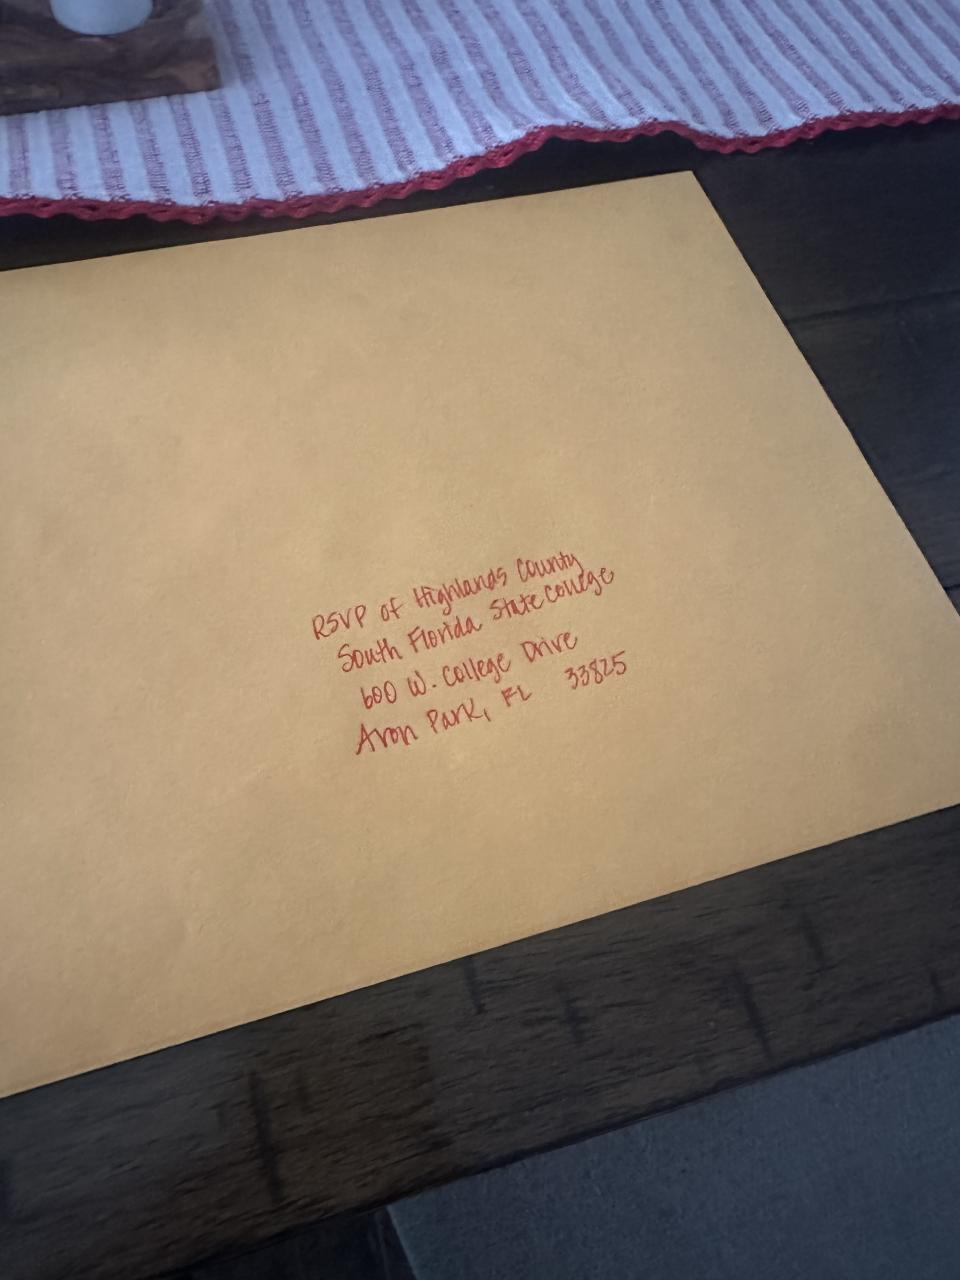 RSVP of Highlands County
South Florida State College
600 W. College Drive
Avon Park, FL 33825